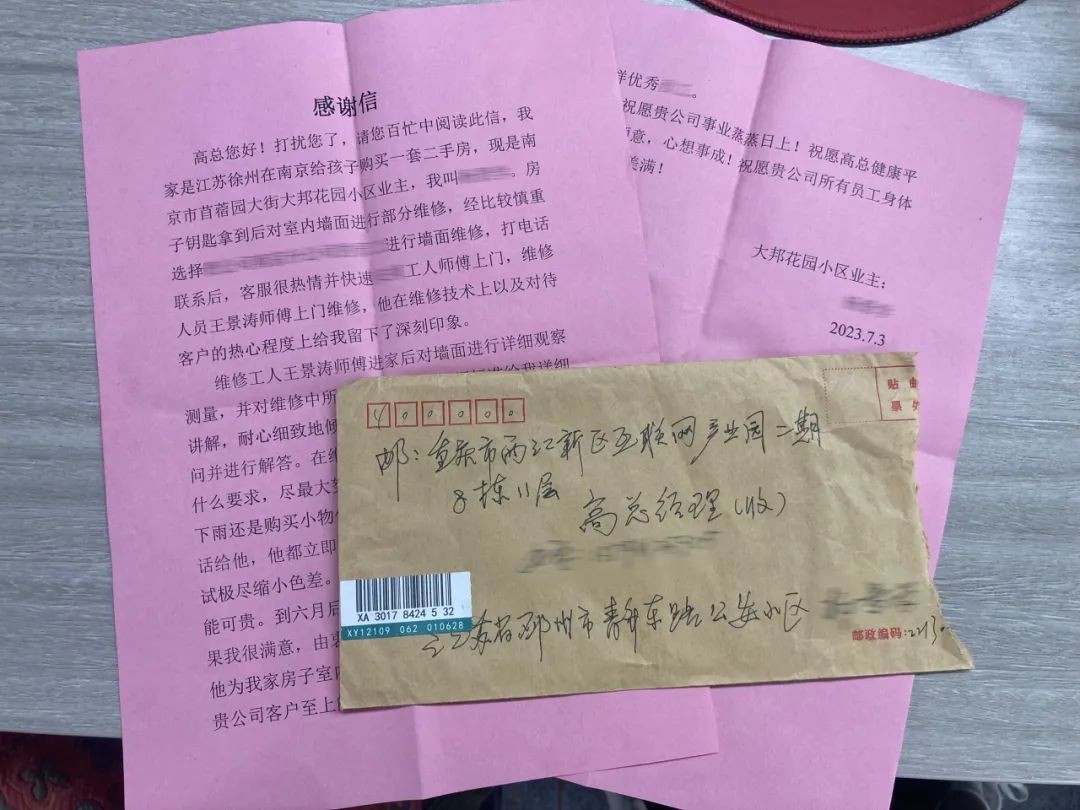 感谢信
高总您好！打扰您了，请您百忙中阅读此信，我
家是江苏徐州在南京给孩子购买一套二手房，现是南
京市苜蓿园大街大邦花园小区业主，我叫 。房
子钥匙拿到后对室内墙面进行部分维修，经比较慎重
选择 进行墙面维修，打电话
联系后，客服很热情并快速 工人师傅上门，维修
人员王景涛师傅上门维修，他在维修技术上以及对待
客户的热心程度上给我留下了深刻印象。
维修工人王景涛师傅进家后对墙面进行详细观察
测量，并对维修中所 给我详细
讲解，耐心细致地倾
问并进行解答。在维
什么要求，尽最大努
下雨还是购买小物
话给他，他都立即
试极尽缩小色差。
能可贵。到六月
果我很满意，由衷
他为我家房子室
贵公司客户至上
样优秀 。
祝愿贵公司事业蒸蒸日上！祝愿高总健康平
意，心想事成！祝愿贵公司所有员工身体
美满！
大邦花园小区业主：
2023.7.3
400000
贴 邮
票 处
邮：重庆市两江新区互联网产业园二期
8栋11层
高总经理（收）
XA 3017 8424 5 32
XY12109 062 010628
江苏省邳州市青年东路公安小区
邮政编码：22130